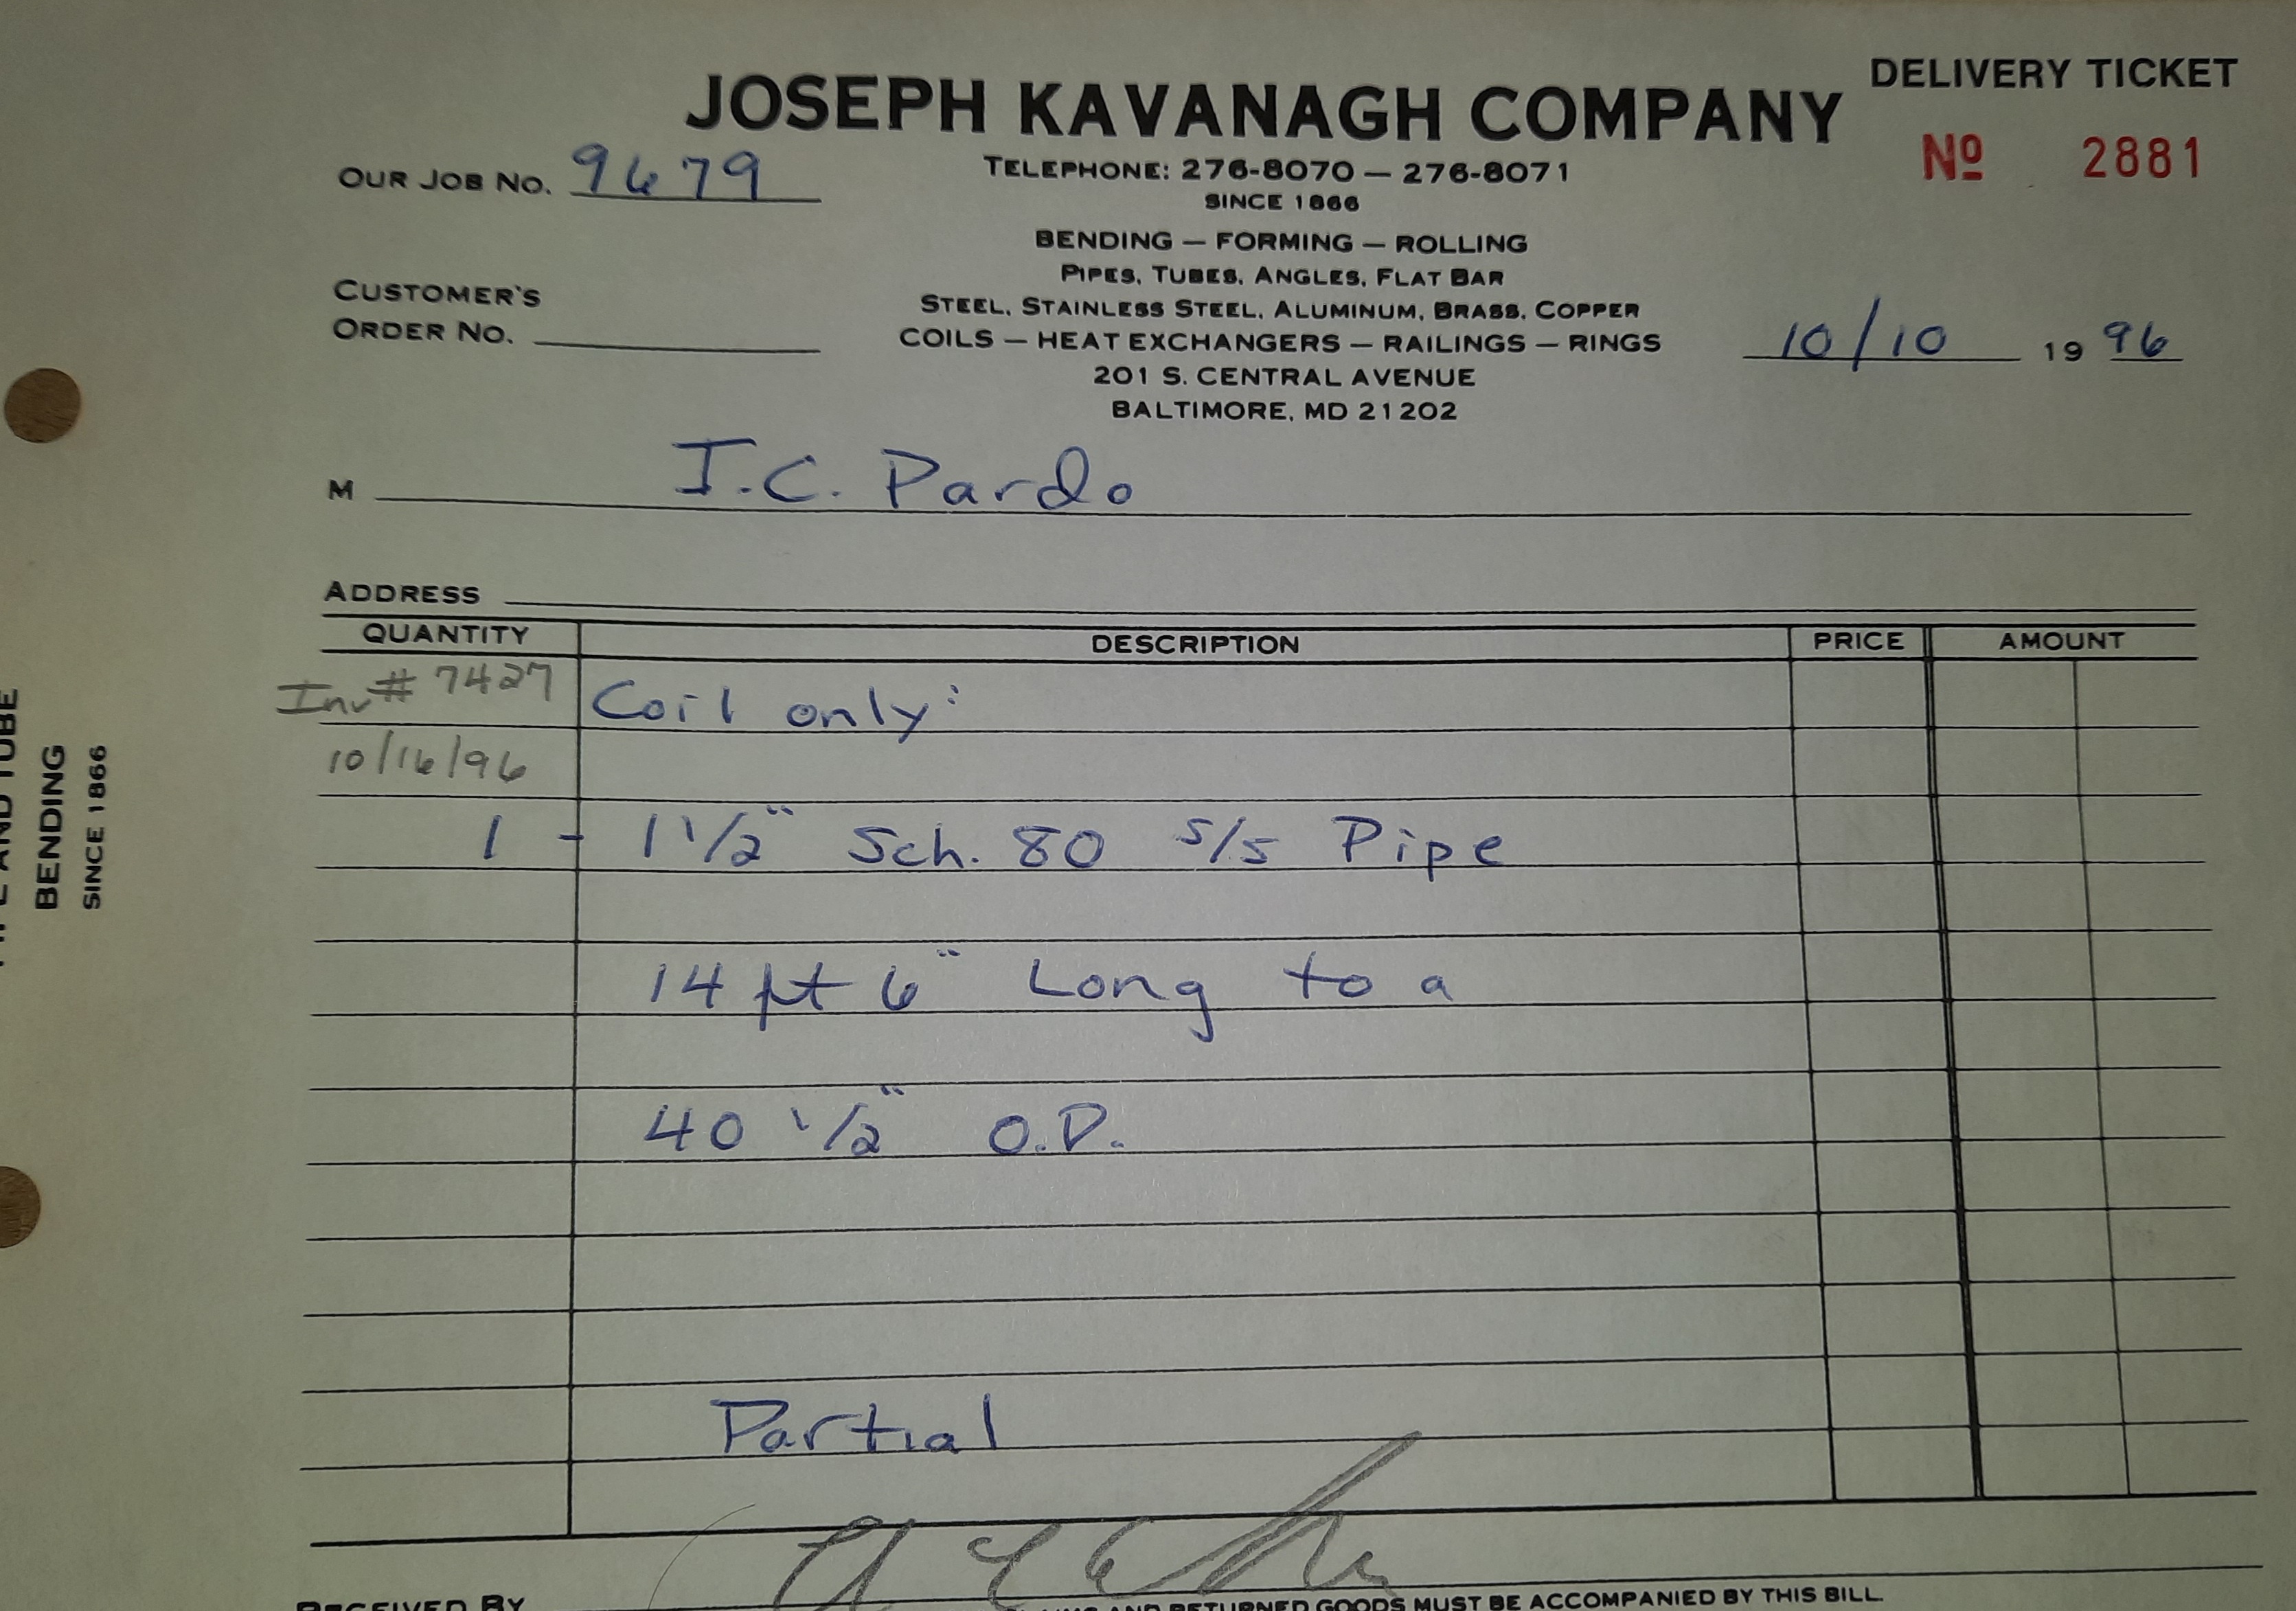 DELIVERY TICKET
JOSEPH KAVANAGH COMPANY
Nº 2881
OUR JOB NO. 9679
TELEPHONE: 276-8070 — 276-8071
SINCE 1866
BENDING — FORMING — ROLLING
PIPES, TUBES, ANGLES, FLAT BAR
CUSTOMER'S
ORDER NO.
STEEL, STAINLESS STEEL, ALUMINUM, BRASS, COPPER
COILS — HEAT EXCHANGERS — RAILINGS — RINGS
10/10 19 96
201 S. CENTRAL AVENUE
BALTIMORE, MD 21202
M I.C. Pardo
ADDRESS
QUANTITY DESCRIPTION PRICE AMOUNT
Inv# 7427 Coil only:
10/16/96
1 - 1 1/2" Sch. 80 S/S Pipe
14 ft 6" Long to a
40 1/2" O.D.
Partial
RECEIVED BY
AND RETURNED GOODS MUST BE ACCOMPANIED BY THIS BILL.
AND TUBE
BENDING
SINCE 1866